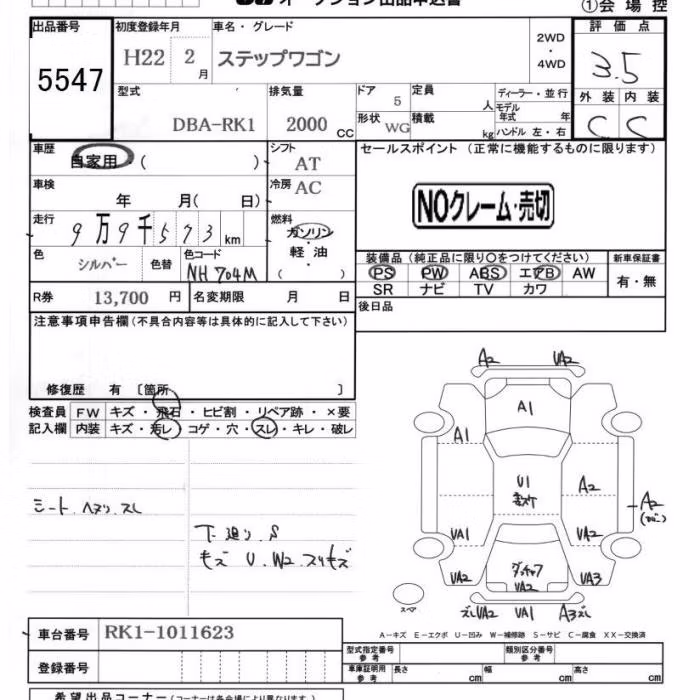 オークション出品申込書 ①会場控
出品番号 初度登録年月 車名・グレード 2WD・4WD 評価点
5547 H22 2月 ステップワゴン 3.5
型式 排気量 ドア 定員 ディーラー・並行 外装 内装
DBA-RK1 2000CC 5 人 モデル年式 年 C C
形状 WG 積載 kg ハンドル 左・右
車歴 自家用・( ) シフト AT セールスポイント (正常に機能するものに限ります)
車検 年 月( 日) 冷房 AC
NOクレーム・売切
走行 9万9千573km 燃料 ガソリン・軽油( )
色 シルバー 色替 色コード NH704M
装備品(純正品に限り〇をつけてください) 新車保証書
PS PW ABS エアB AW 有・無
SR ナビ TV カワ
R券 13,700 円 名変期限 月 日 後日品
注意事項申告欄(不具合内容等は具体的に記入して下さい)
修復歴 有 〔箇所 〕
検査員 FW キズ・飛石・ヒビ割・リペア跡・×要
記入欄 内装 キズ・汚レ・コゲ・穴・スレ・キレ・破レ
シート.ヘタリ.スレ
下廻り.S
キズ U.W2.スリキズ
A2 UA2
A1
A1
U1 A2 A2
UA1 UA2
UA2 UA2 UA3
スペア
ズレUA2 UA1 A3ズレ
A-キズ E-エクボ U-凹み W-補修跡 S-サビ C-腐食 XX-交換済
車台番号 RK1-1011623
型式指定番号 参考 類別区分番号 参考
登録番号
車庫証明用 参考 長さ cm 幅 cm 高さ cm
希望出品コーナー(コーナーは各会場により異なります)